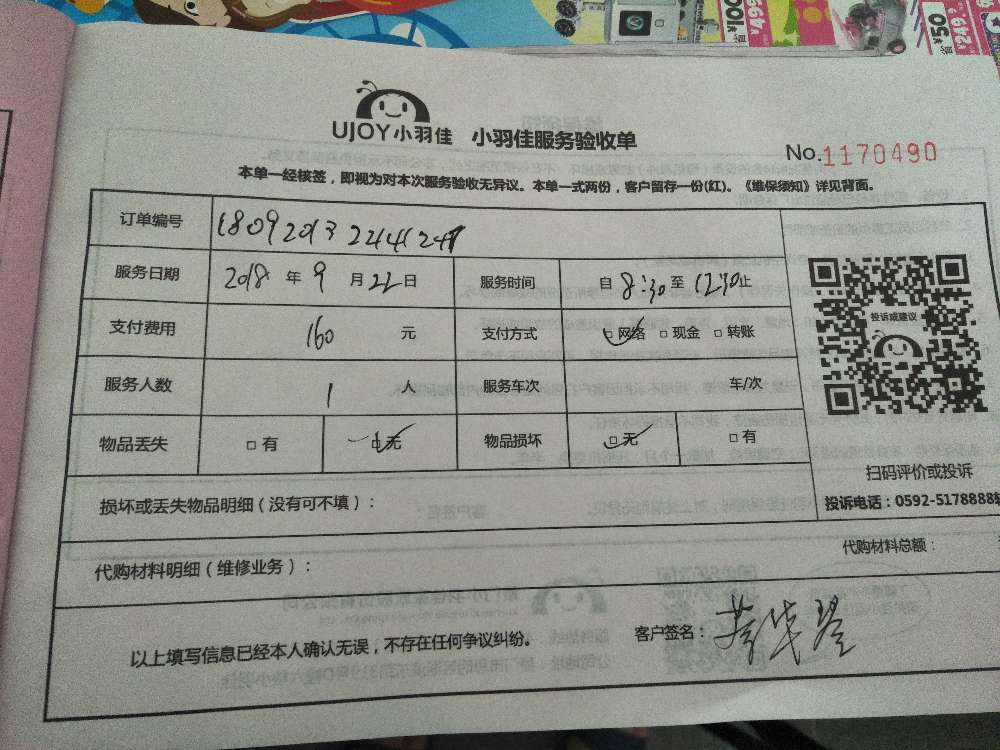 省¥100
¥499
省¥50
¥249.9
UJOY小羽佳 小羽佳服务验收单
No.1170490
本单一经核签，即视为对本次服务验收无异议。本单一式两份，客户留存一份(红)。《维保须知》详见背面。
订单编号
服务日期 2018 年 9 月 22 日 服务时间 自 8:30 至 12:30 止
支付费用 160 元 支付方式 □网络 □现金 □转账
投诉或建议
服务人数 1 人 服务车次 车/次
物品丢失 □有 □无 物品损坏 □无 □有
扫码评价或投诉
损坏或丢失物品明细（没有可不填）：
投诉电话：0592-5178888转
代购材料明细（维修业务）：
代购材料总额：
以上填写信息已经本人确认无误，不存在任何争议纠纷。
客户签名：